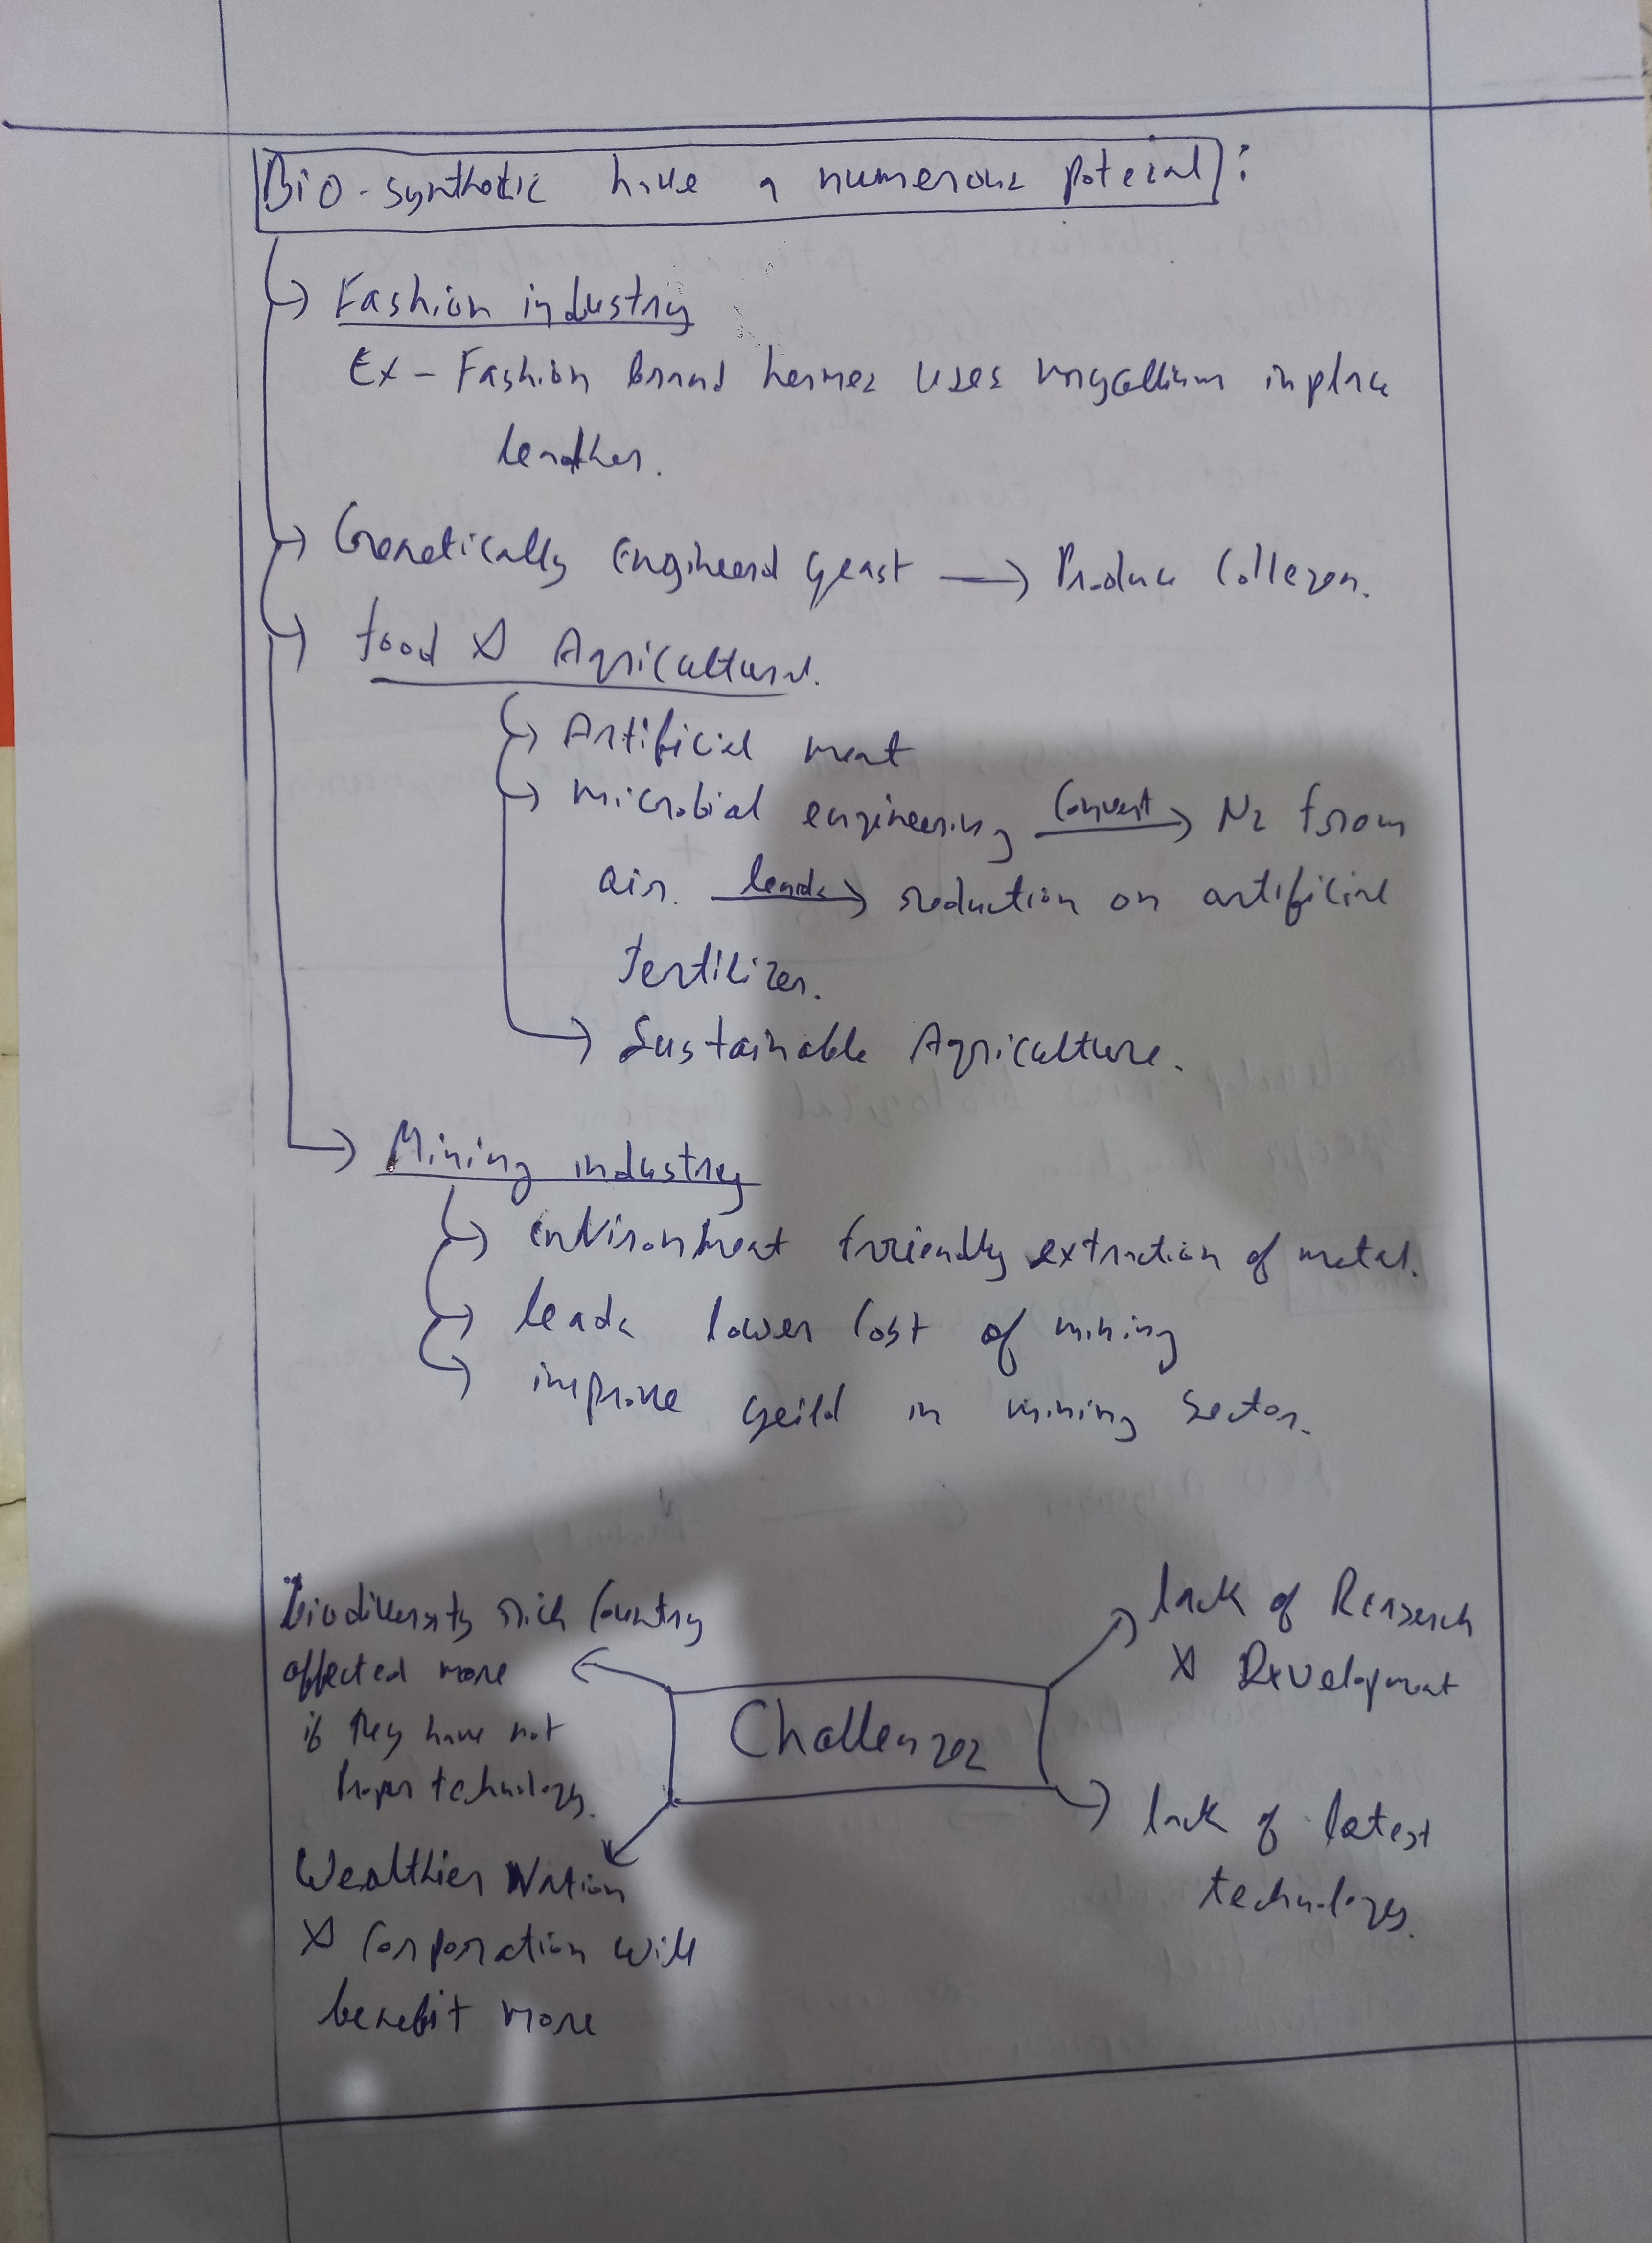 Bio-synthetic have a numerous poteial :
Fashion industry
Ex - Fashion brand hermes uses mycellium inplace
leather.
Genetically Engineerd yeast → Produce Collegen.
food & Agricultural.
Artificial meat
microbial engineering convert → N2 from
air. leads → reduction on artificial
fertilizer.
Sustainable Agriculture.
Mining industry
environment friendly extraction of metal.
leads lower cost of mining
improve yeild in mining sector.
Biodiversity rich Country
affected more
if they have not
Proper technology.
lack of Research
& Development
Challenges
lack of latest
technology.
Wealthier Nation
& Corporation will
benefit more